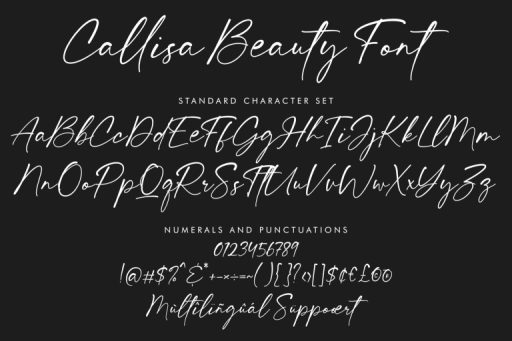 Callisa Beauty Font
STANDARD CHARACTER SET
AaBbCcDdEeFfGgHhIiJjKkLlMm
NnOoPpQqRrSsTtUuVvWwXxYyZz
NUMERALS AND PUNCTUATIONS
0123456789
!@#$%^&*+-×÷=~(){}?‹›[]$¢€£
Múltîlïñgûál Suppoœrt